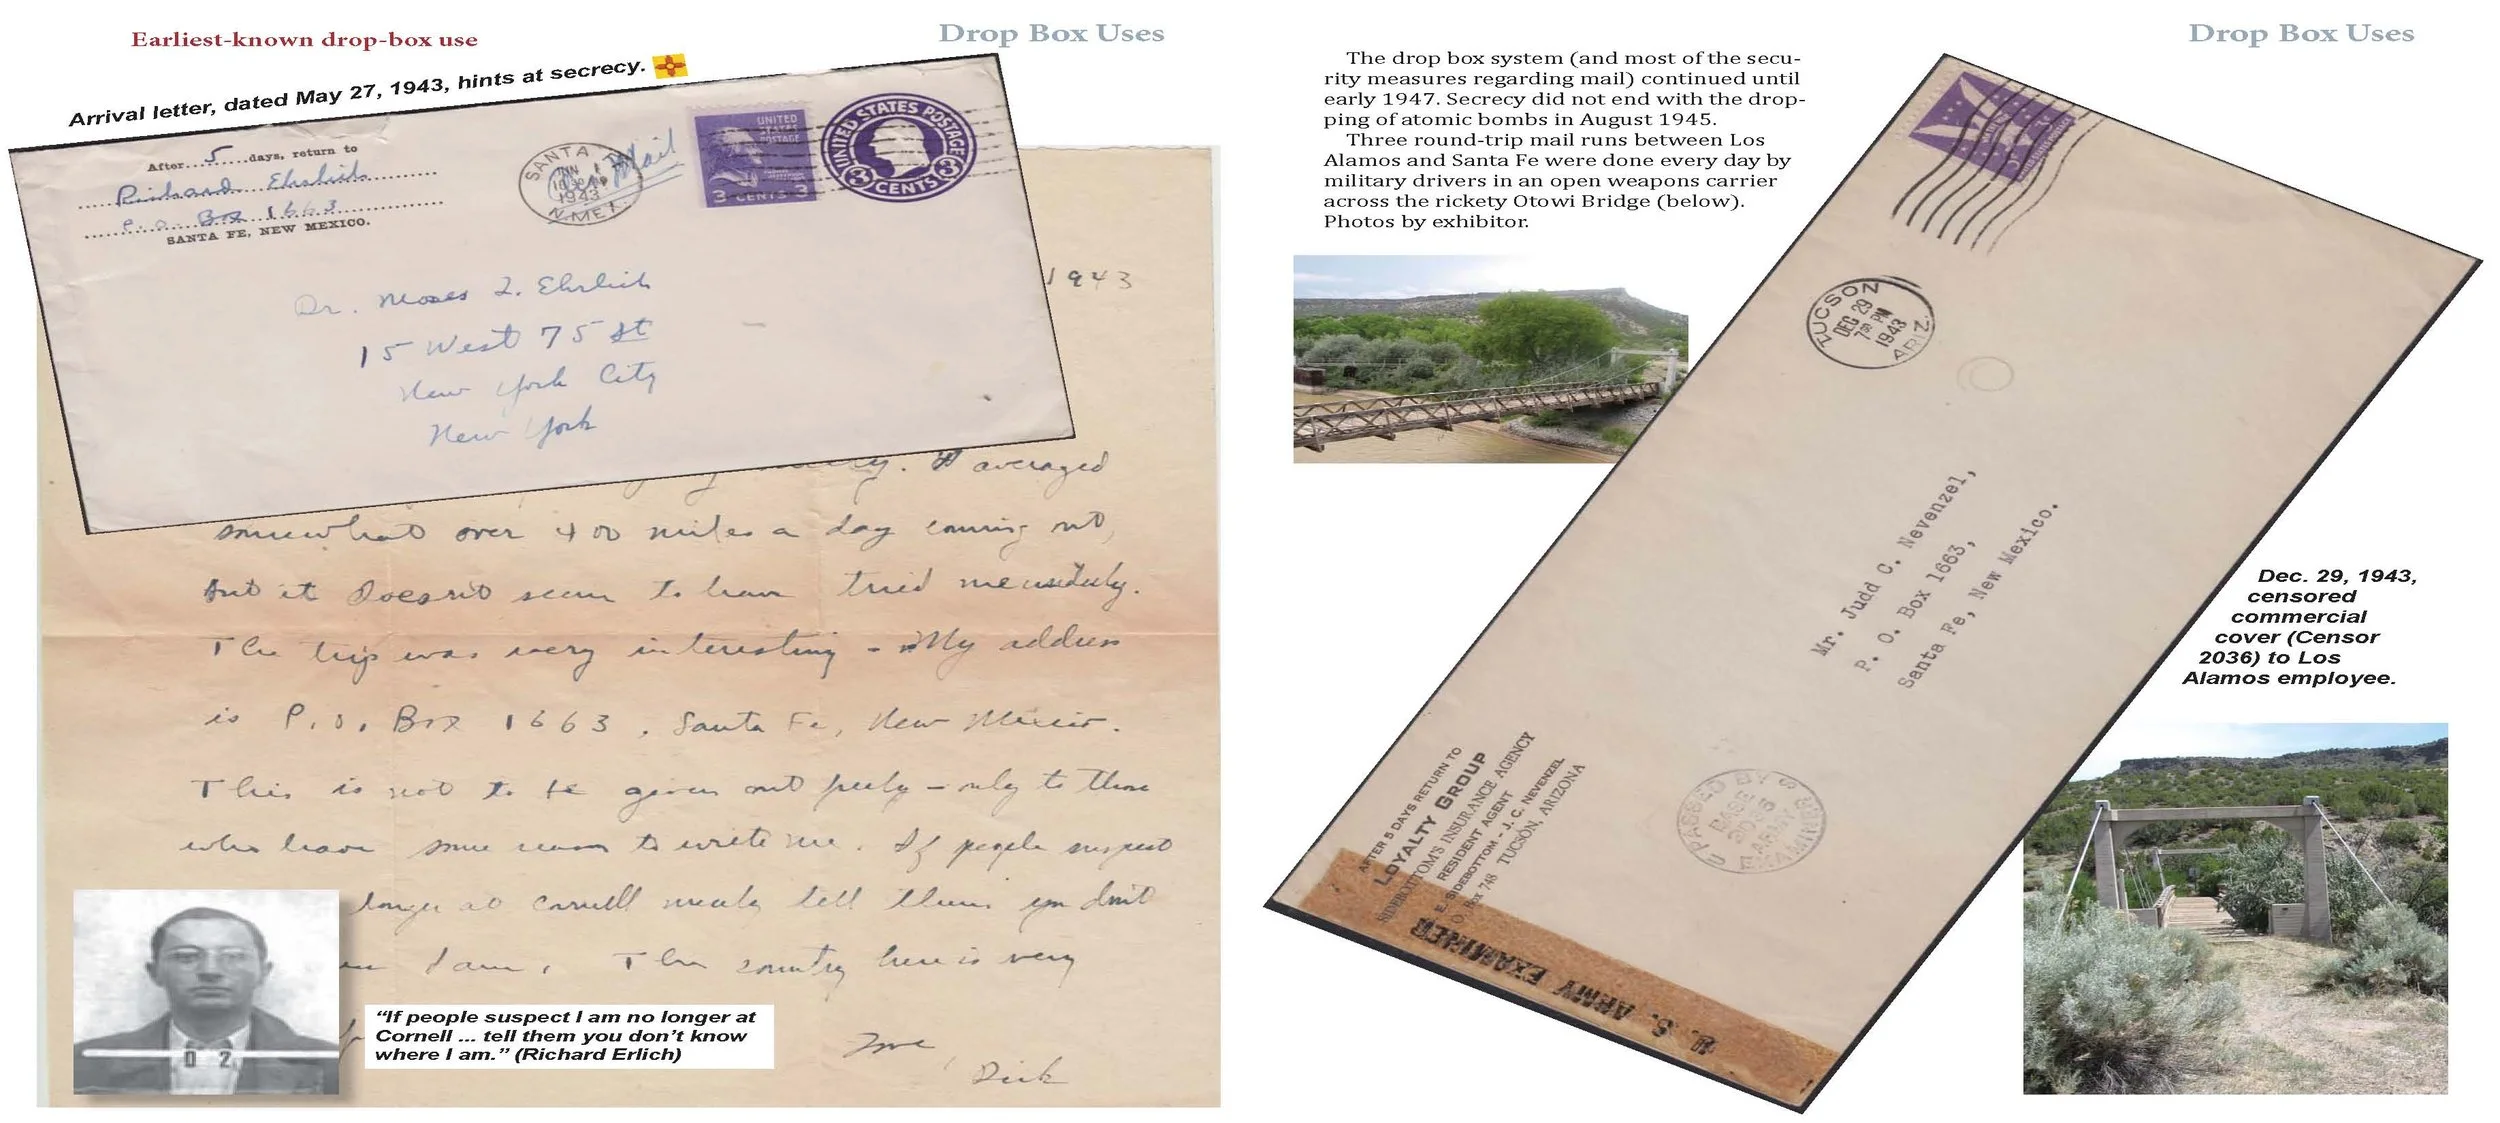 Earliest-known drop-box use
Drop Box Uses
Arrival letter, dated May 27, 1943, hints at secrecy.
After 5 days, return to
Richard Ehrlich
P.O. Box 1663
SANTA FE, NEW MEXICO.
SANTA
JUN 1
1943
N.MEX.
Mail
UNITED
STATES
POSTAGE
3 CENTS 3
UNITED STATES POSTAGE
3 CENTS 3
Dr. Moses L. Ehrlich
15 West 75 St
New York City
New York
1943
averaged
somewhat over 400 miles a day coming out,
but it doesn't seem to have tired me unduly.
The trip was very interesting - My address
is P.O. Box 1663, Santa Fe, New Mexico.
This is not to be given out freely - only to those
who have some reason to write me. If people suspect
longer at Cornell merely tell them you don't
I am. The country here is very
Love,
Dick
0 2
“If people suspect I am no longer at
Cornell ... tell them you don’t know
where I am.” (Richard Erlich)
Drop Box Uses
The drop box system (and most of the secu-
rity measures regarding mail) continued until
early 1947. Secrecy did not end with the drop-
ping of atomic bombs in August 1945.
Three round-trip mail runs between Los
Alamos and Santa Fe were done every day by
military drivers in an open weapons carrier
across the rickety Otowi Bridge (below).
Photos by exhibitor.
TUCSON
DEC 29
7 PM
1943
ARIZ.
Mr. Judd C. Nevenzel,
P. O. Box 1663,
Santa Fe, New Mexico.
AFTER 5 DAYS RETURN TO
LOYALTY GROUP
SIDEBOTTOM'S INSURANCE AGENCY
RESIDENT AGENT
E. SIDEBOTTOM - J. C. NEVENZEL
P.O. Box 748 TUCSON, ARIZONA
PASSED BY
BASE
ARMY
EXAMINER
U. S. ARMY EXAMINER
Dec. 29, 1943,
censored
commercial
cover (Censor
2036) to Los
Alamos employee.